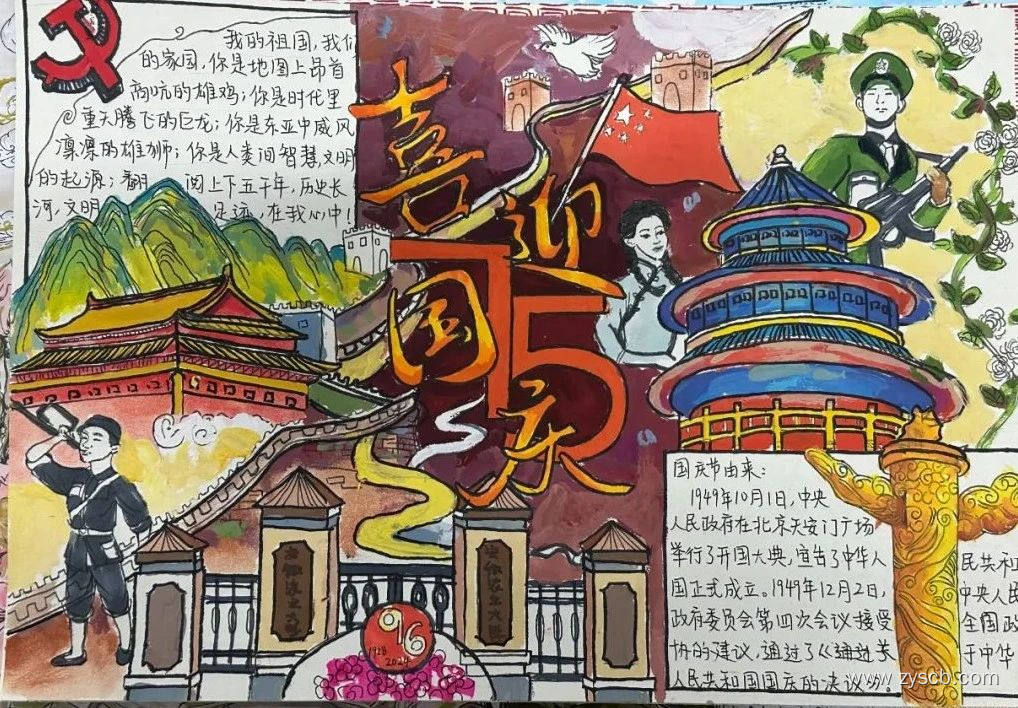 我的祖国，我们
的家园，你是地图上昂首
高吭的雄鸡；你是时代里
重天腾飞的巨龙；你是东亚中威风
凛凛的雄狮；你是人类间智慧文明
的起源；翻阅上下五千年，历史长
河，文明 足迹，在我心中！
喜迎国庆
75
国庆节由来：
1949年10月1日，中央
人民政府在北京天安门广场
举行了开国大典，宣告了中华人
国正式成立。1949年12月2日，
政府委员会第四次会议接受
协的建议，通过了《
人民共和国国庆的决议》。
民共和
中央人民
全国政
于中华
96
1928
2024
www.zyscb.com